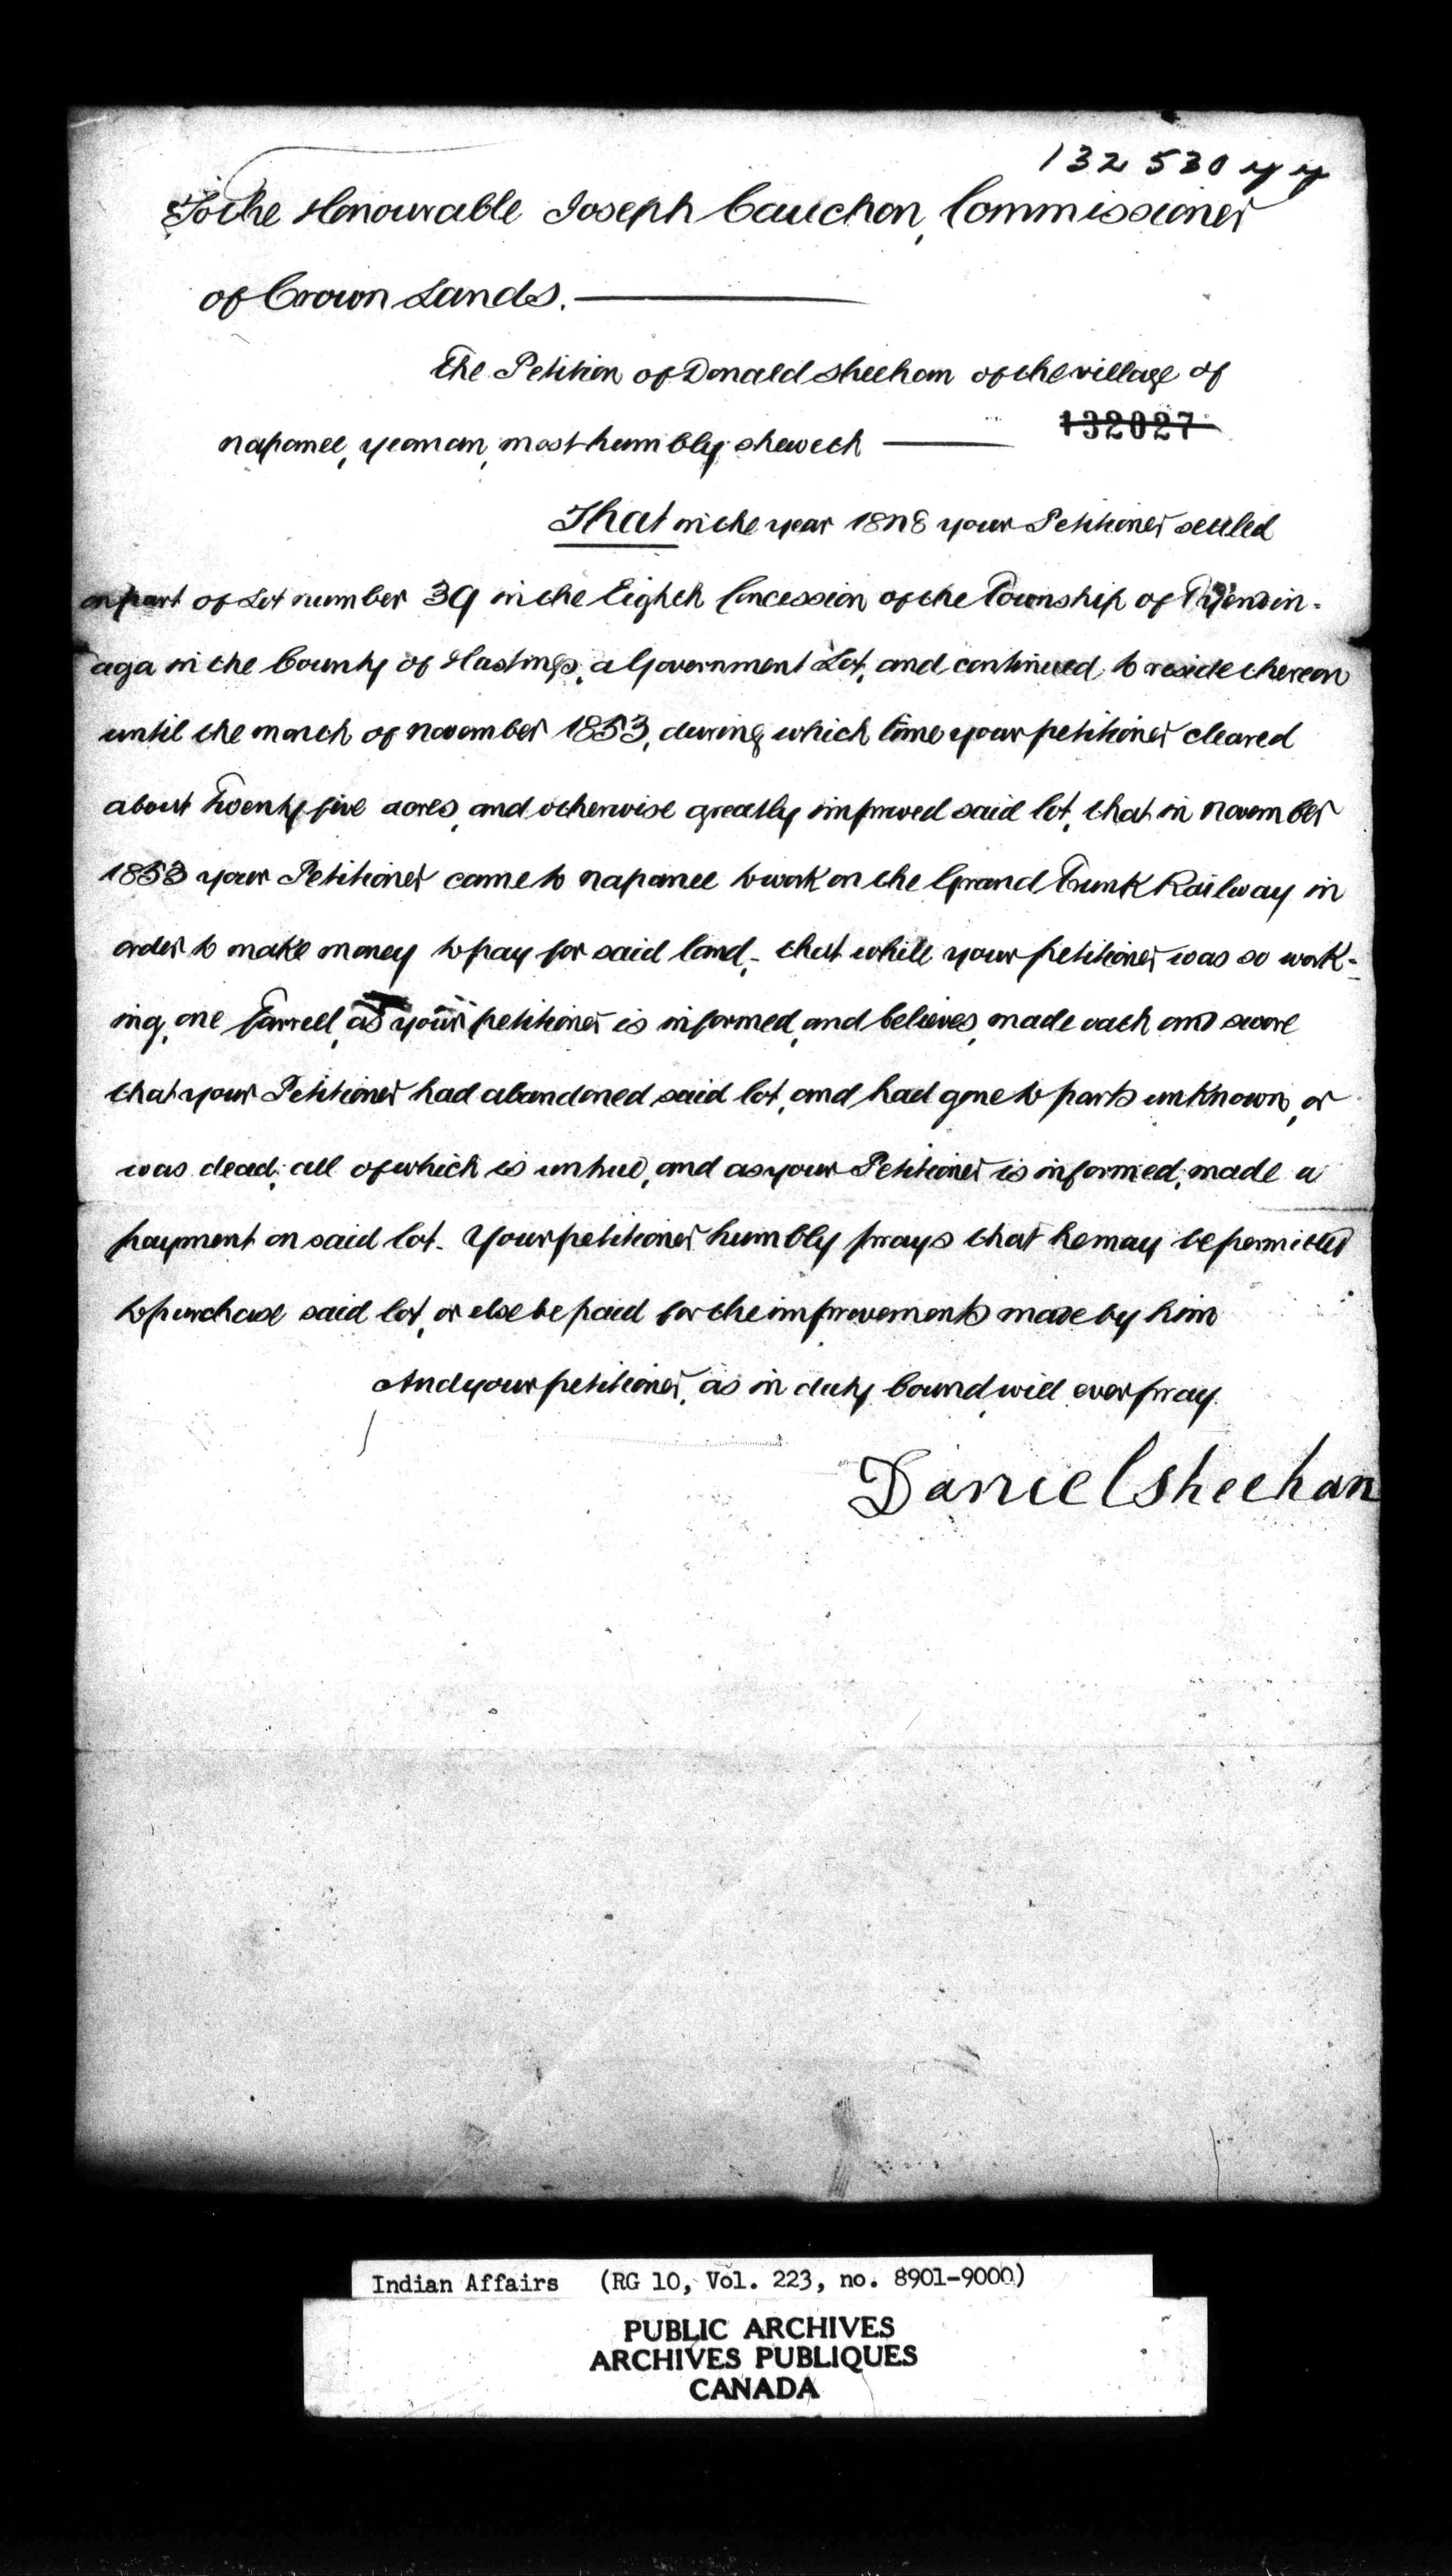 132 530 yy
To the Honourable Joseph Cauchon, Commissioner
of Crown Lands.
The Petition of Donald Sheehan of the village of
napanee, yeoman, most humbly sheweth
132027
That in the year 1848 your Petitioner settled
on part of Lot number 39 in the Eighth Concession of the Township of Tyendin-
aga in the County of Hastings, a Government Lot, and continued to reside thereon
until the month of november 1853, during which time your petitioner cleared
about Twenty five acres, and otherwise greatly improved said lot, that in november
1853 your Petitioner came to napanee to work on the Grand Trunk Railway in
order to make money to pay for said land, - that while your petitioner was so work-
ing, one Farrell, as your petitioner is informed, and believes, made oath and swore
that your Petitioner had abandoned said lot, and had gone to parts unknown, or
was dead, all of which is untrue, and as your Petitioner is informed, made a
payment on said lot. Your petitioner humbly prays that he may be permitted
to purchase said lot, or else be paid for the improvements made by him
And your petitioner, as in duty bound, will ever pray.
Daniel Sheehan
Indian Affairs (RG 10, Vol. 223, no. 8901-9000)
PUBLIC ARCHIVES
ARCHIVES PUBLIQUES
CANADA